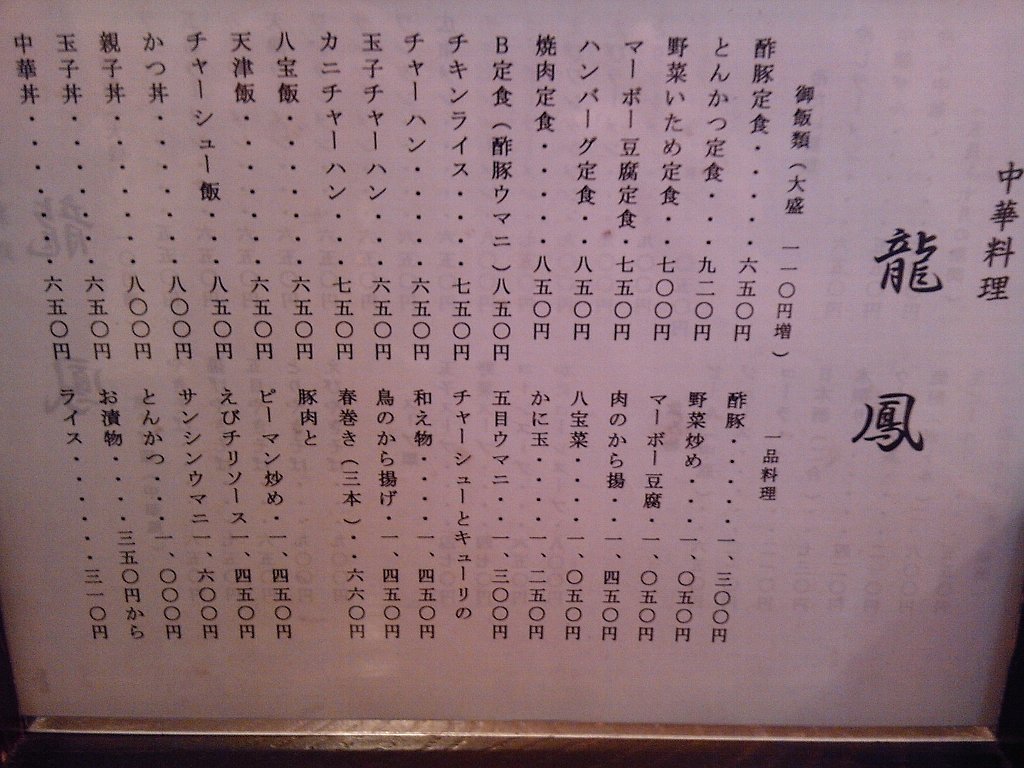 中華料理
龍鳳
御飯類（大盛　一一〇円増）
酢豚定食・・・・・六五〇円
とんかつ定食・・・九二〇円
野菜いため定食・・七〇〇円
マーボー豆腐定食・七五〇円
ハンバーグ定食・・八五〇円
焼肉定食・・・・・八五〇円
B定食（酢豚ウマニ）八五〇円
チキンライス・・・七五〇円
チャーハン・・・・六五〇円
玉子チャーハン・・六五〇円
カニチャーハン・・七五〇円
八宝飯・・・・・・六五〇円
天津飯・・・・・・六五〇円
チャーシュー飯・・八五〇円
かつ丼・・・・・・八〇〇円
親子丼・・・・・・八〇〇円
玉子丼・・・・・・六五〇円
中華丼・・・・・・六五〇円
一品料理
酢豚・・・・・一、三〇〇円
野菜炒め・・・一、〇五〇円
マーボー豆腐・一、〇五〇円
肉のから揚・・一、四五〇円
八宝菜・・・・一、〇五〇円
かに玉・・・・一、二五〇円
五目ウマニ・・一、三〇〇円
チャーシューとキューリの
和え物・・・・一、四五〇円
鳥のから揚げ・一、四五〇円
春巻き（三本）・・六六〇円
豚肉と
ピーマン炒め・一、四五〇円
えびチリソース一、四五〇円
サンシンウマニ一、六〇〇円
とんかつ・・・一、〇〇〇円
お漬物・・・・三五〇円から
ライス・・・・・・三一〇円